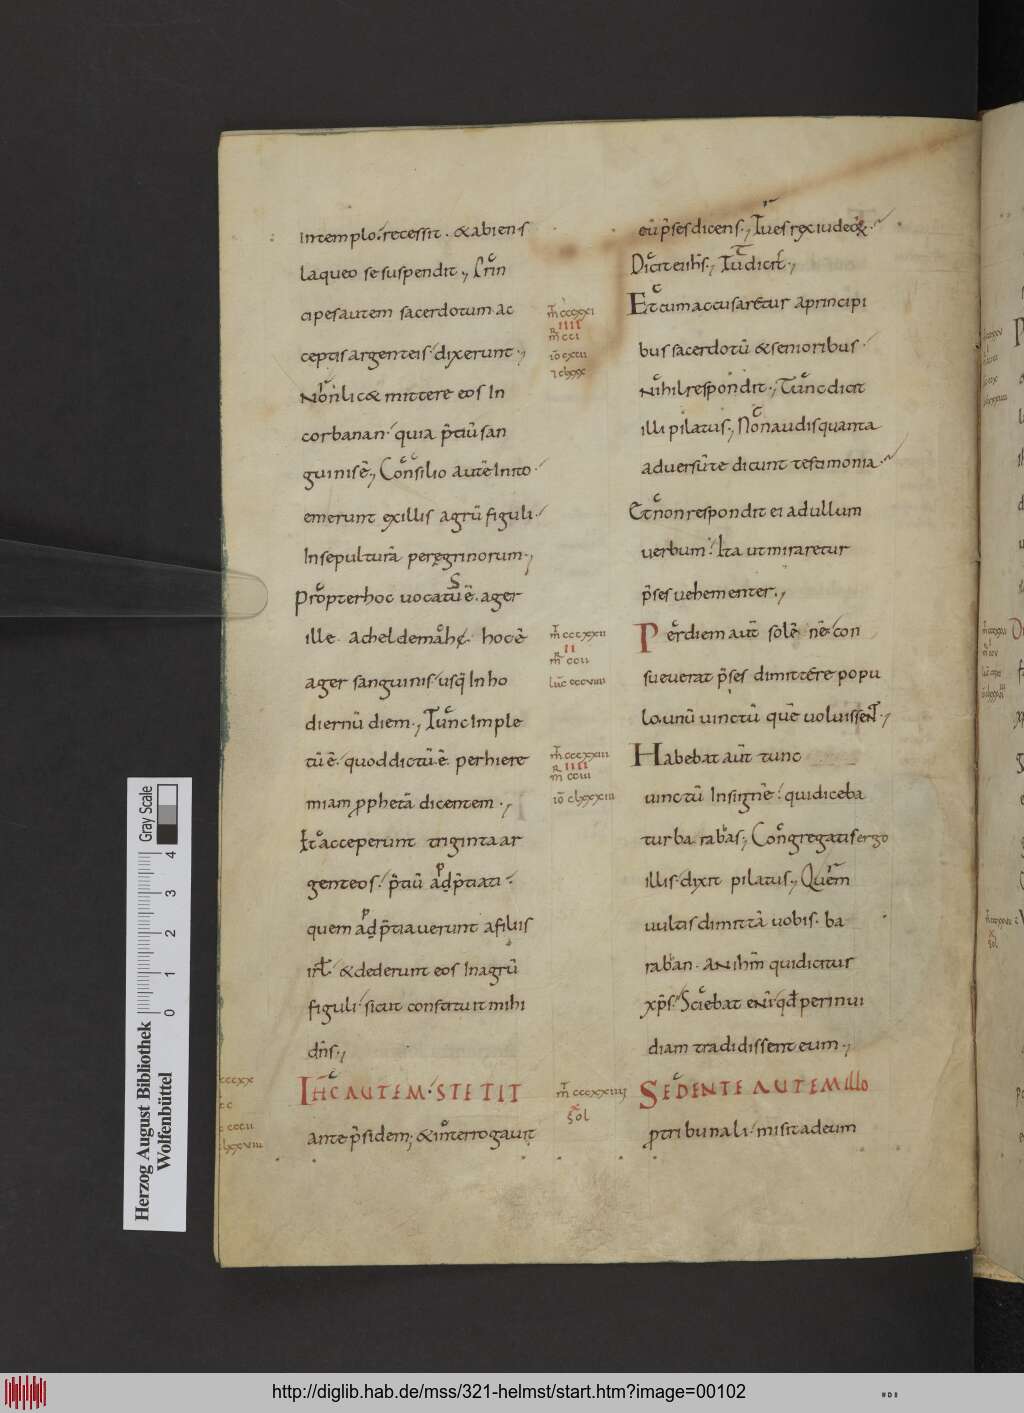 in templo. recessit. & abiens
laqueo se suspendit., Prin
cipes autem sacerdotum ac
ceptis argenteis. dixerunt.,
Non lic& mittere eos in
corbanan. quia p̄tiū san
guinis ē., Consilio autē inito.
emerunt ex illis agrū figuli.
In sepulturā peręgrinorum.,
Propter hoc uocatus ē. ager
ille acheldemahc. hoc ē
ager sanguinis. usq̄ in ho
diernū diem., Tunc imple
tū ē. quod dictū ē. per hiere
miam ꝓphetā dicentem.,
Et acceperunt triginta ar
genteos. p̄tiū adp̄tiati.
quem adp̄tiauerunt a filiis
irl̄. & dederunt eos in agrū
figuli. sicut constituit mihi
dn̄s.,
IHC AUTEM. STETIT
ante p̄sidem; & interrogauit
m̄ cccxxi
R IIII
m̄ cci
io cxcii
m̄ cccxxii
R II
m̄ ccii
luc̄ cccviiii
m̄ cccxxiii
R IIII
m̄ cciii
iō clxxxiii
m̄ cccxxiiii
X
sol
eū p̄ses dicens., Tu es rex iudeoꝝ.
Dicit ei ihs̄., Tu dicit.,
Et cum accusaretur a principi
bus sacerdotū & senioribus.
Nihil respondit., Tunc dicit
illi pilatus., Non audis quanta
aduersū te dicunt testimonia.
Et non respondit ei ad ullum
uerbum. Ita ut miraretur
p̄ses uehementer.,
Per diem aut̄ solēnē. con
sueuerat p̄ses dimittere popu
lo. unū uinctū quē uoluissent.,
Habebat aut̄ tunc
uinctū insignē. qui diceba
tur barabbas., Congregatis ergo
illis. dixit pilatus., Quem
uultis dimittā uobis. ba
rabban. an ihm̄ qui dicitur
xp̄s. Sciebat eni. qd̄ per inui
diam tradidissent eum.,
SEDENTE AUTEM illo
ꝓ tribunali. misit ad eum
Herzog August Bibliothek
Wolfenbüttel
0 1 2 3 4
Gray Scale
http://diglib.hab.de/mss/321-helmst/start.htm?image=00102